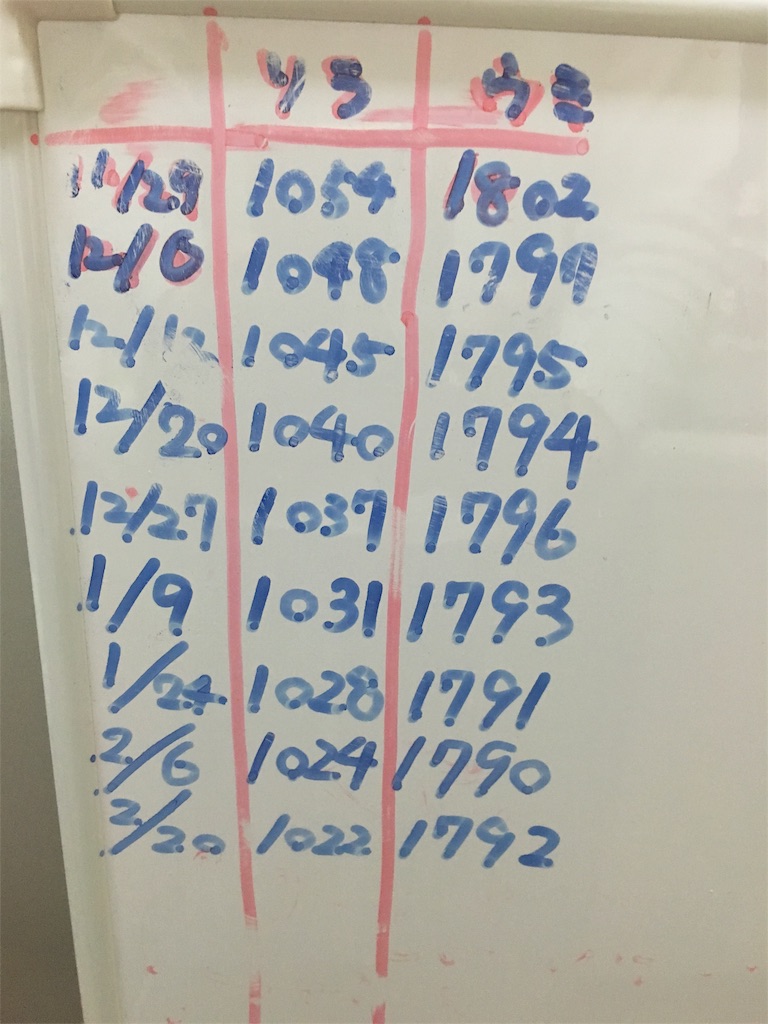 ソラ ウミ
11/29 1054 1802
12/6 1048 1797
12/12 1045 1795
12/20 1040 1794
12/27 1037 1796
1/9 1031 1793
1/24 1028 1791
2/6 1024 1790
2/20 1022 1792